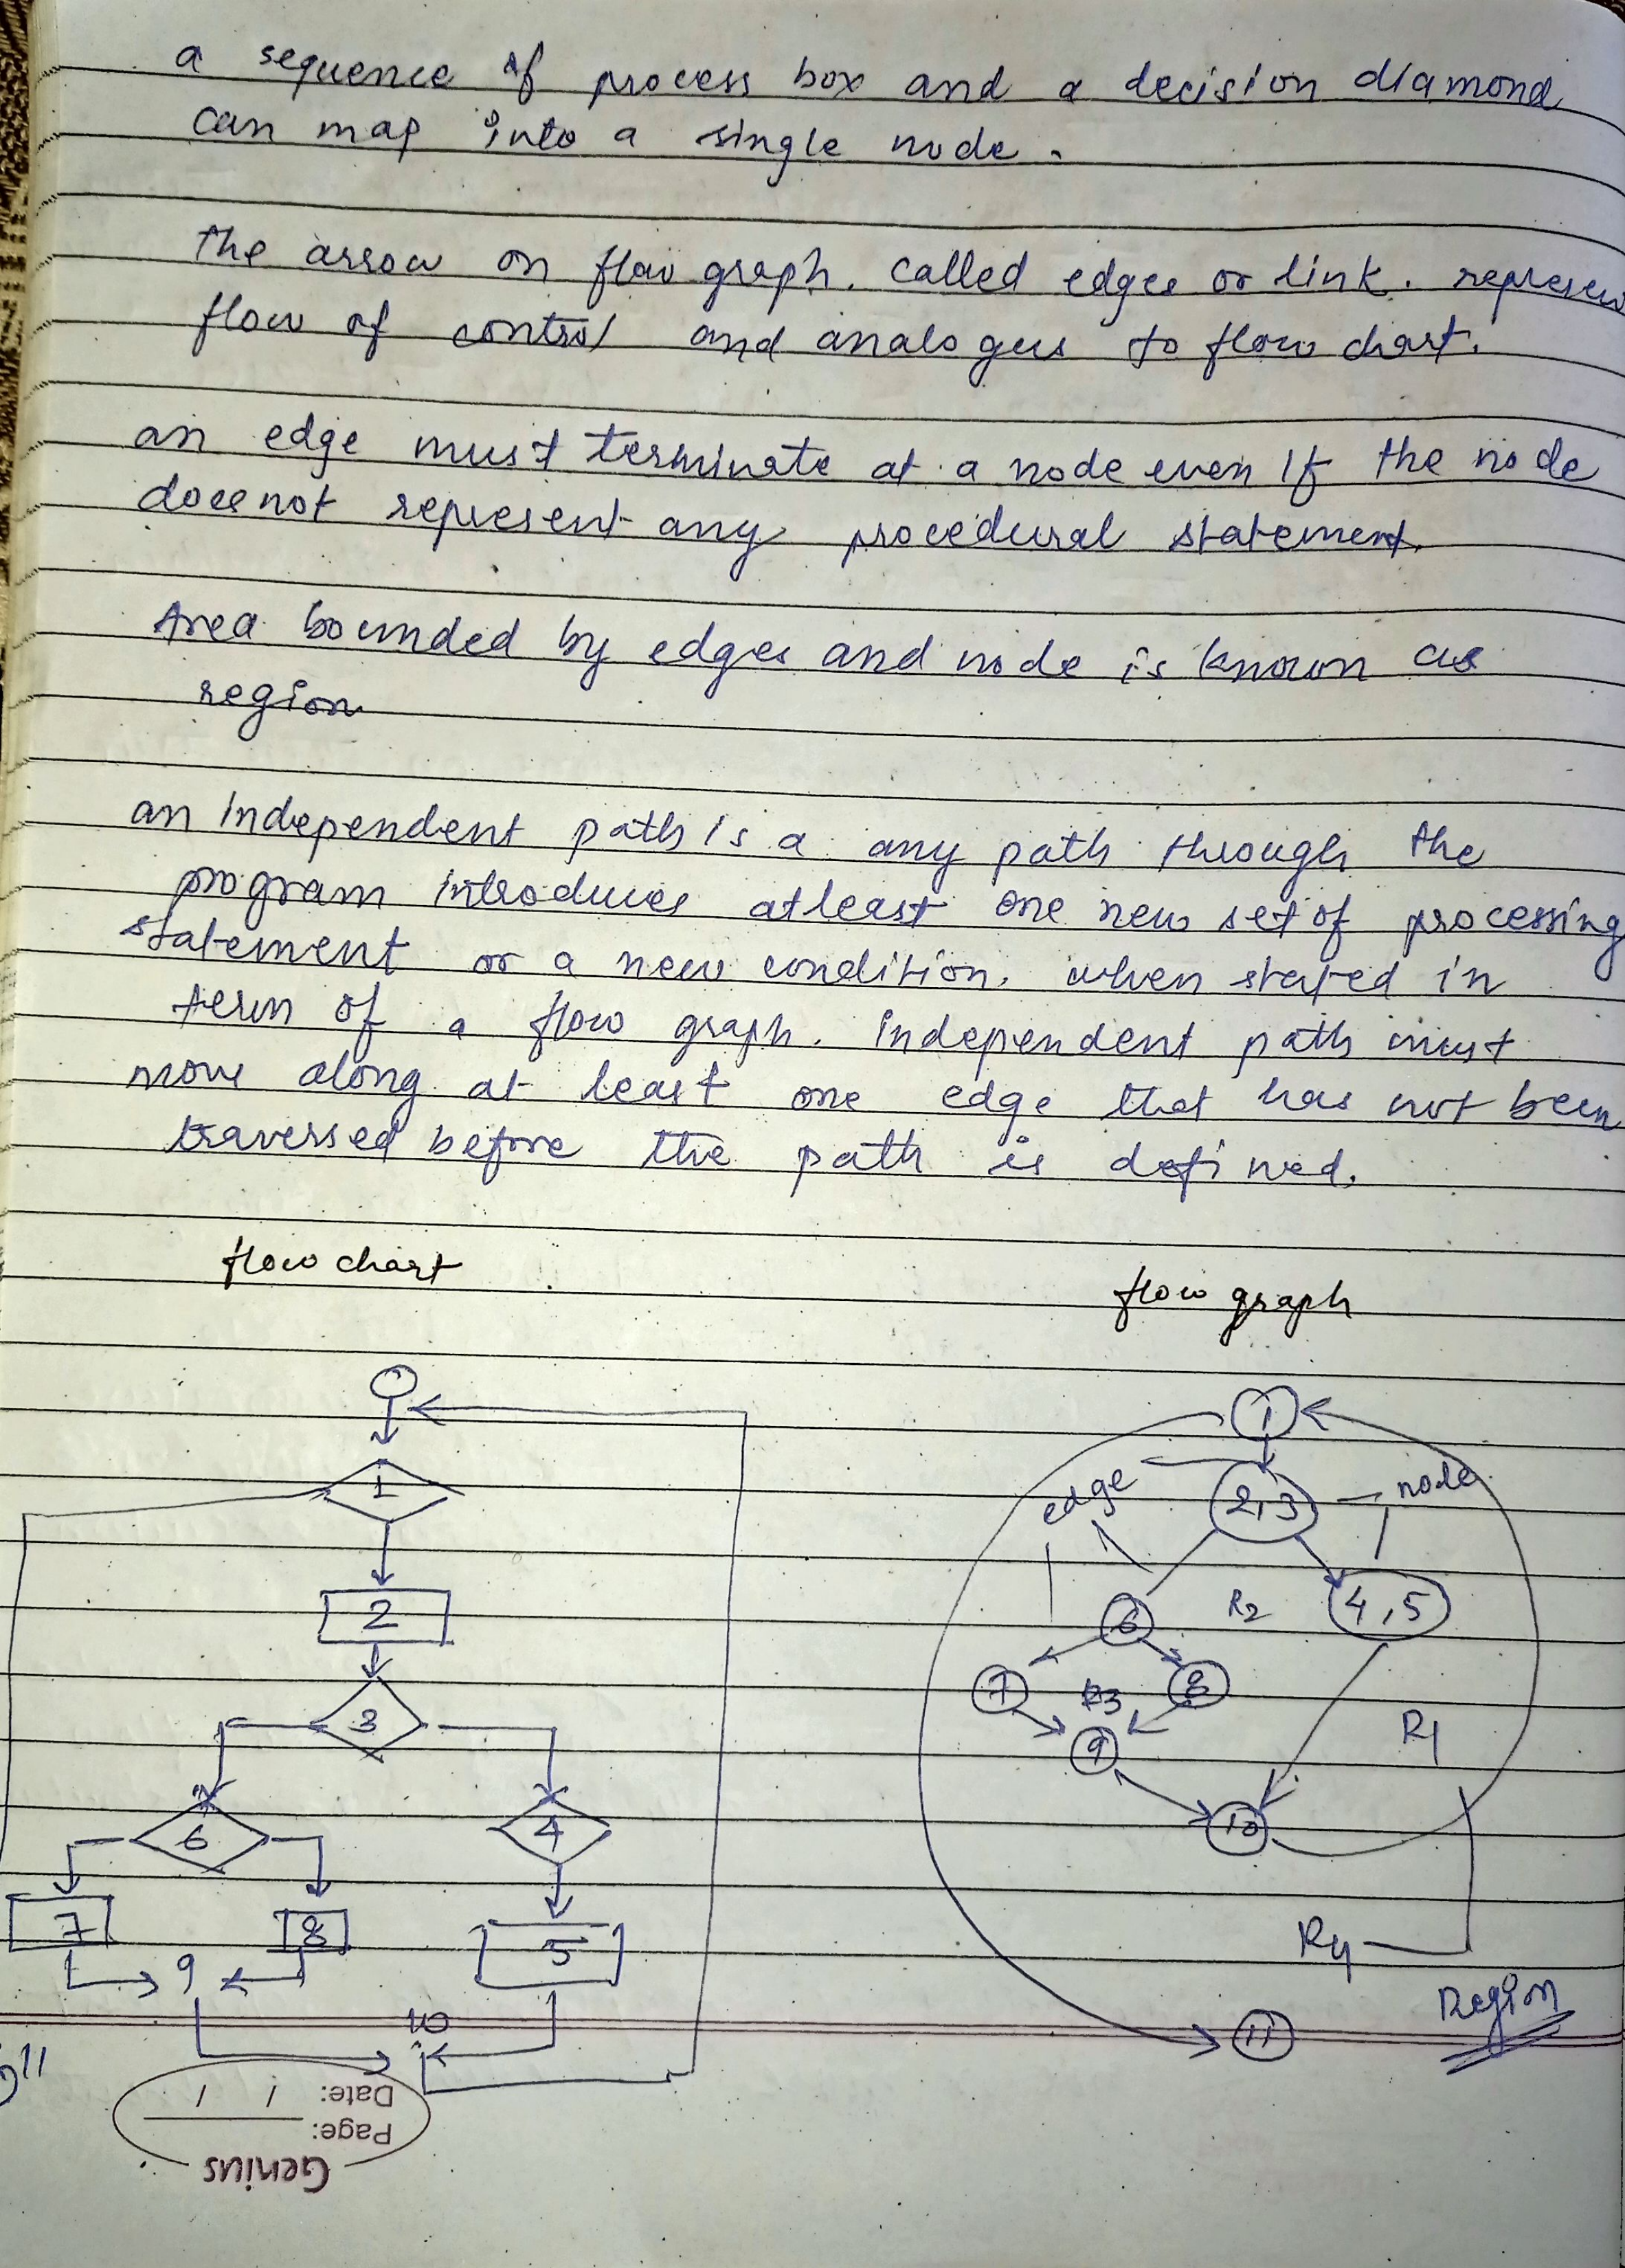 a sequence of process box and a decision diamond
can map into a single node.
the arrow on flow graph. called edges or link. represen
flow of control and analogus to flow chart.
an edge must terminate at a node even if the node
doesnot represent any procedural statement.
Area bounded by edges and node is known as
region
an independent path is a any path through the
program introduces atleast one new set of processing
statement or a new condition. when stated in
term of a flow graph. independent path must
move along at least one edge that has not been
traversed before the path is defined.
flow chart
flow graph
1
2
3
6
4
7
8
5
9
10
11
1
edge
2,3
node
6
R2
4,5
7
R3
8
9
R1
10
R4
Region
11
Date: / /
Page:
Genius